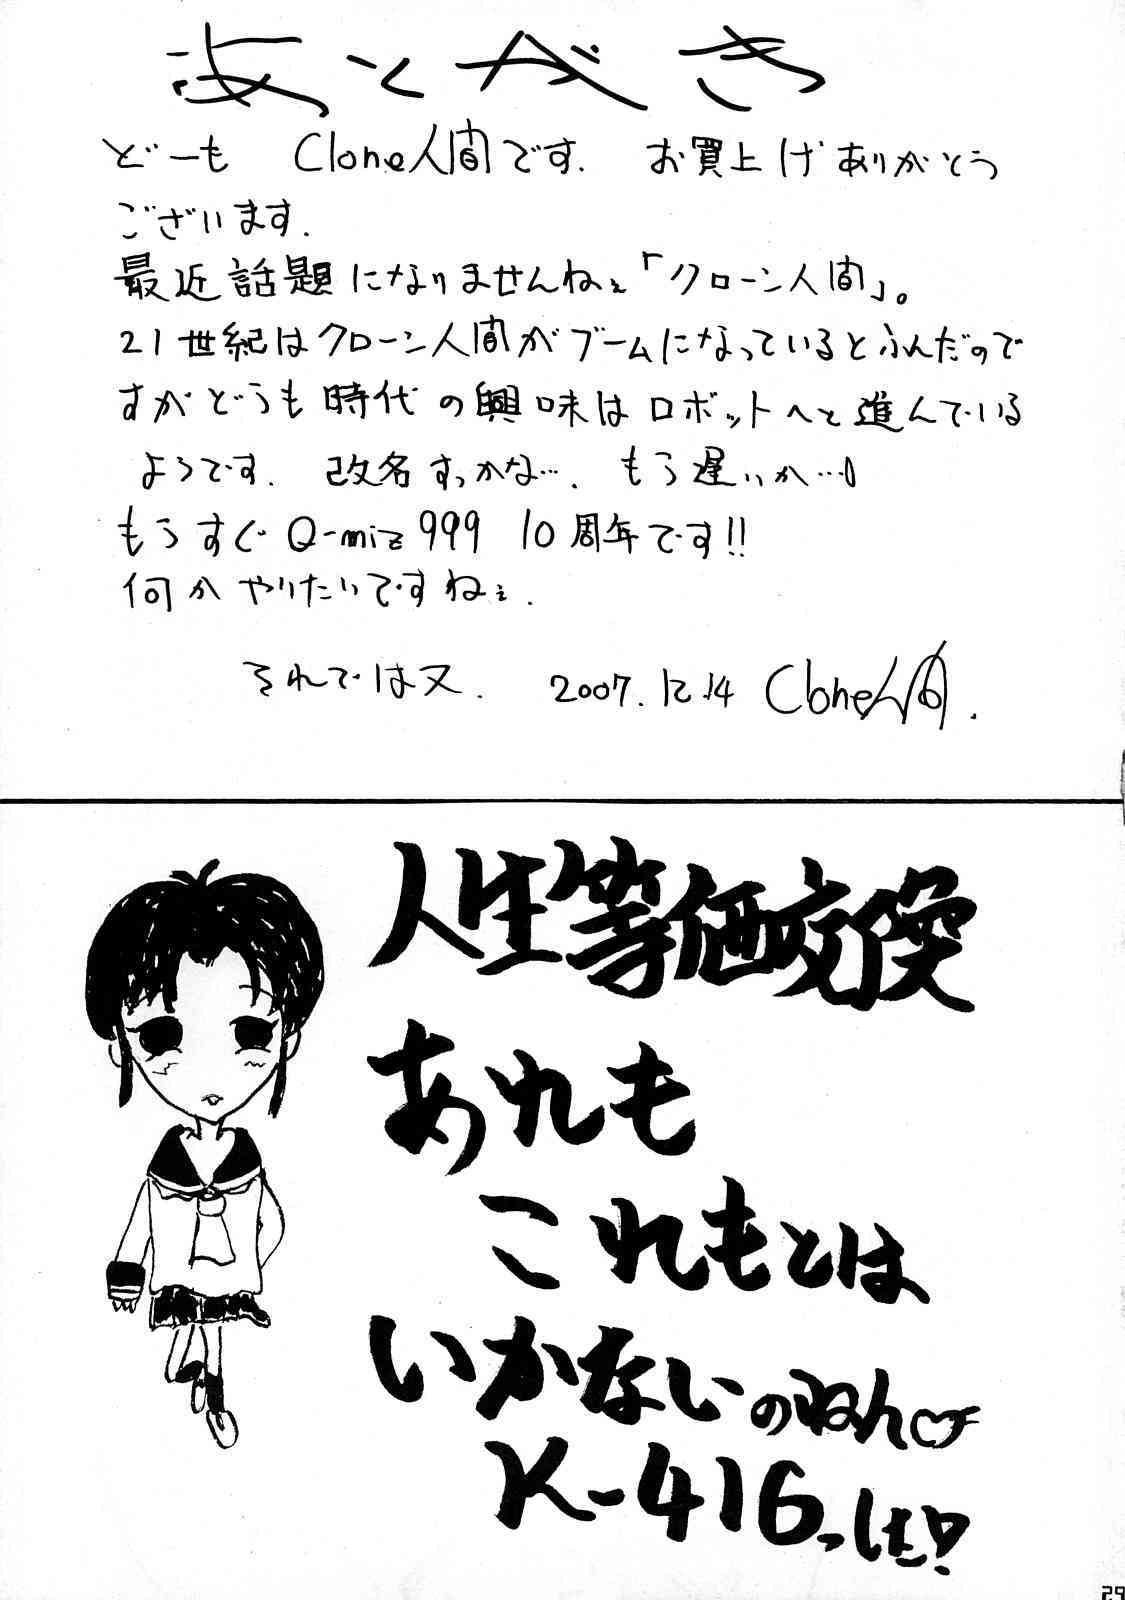 あとがき
どーも Clone人間です. お買上げありがとう
ございます.
最近話題になりませんねぇ「クローン人間」。
21世紀はクローン人間がブームになっているとふんだので
すがどうも時代の興味はロボットへと進んでいる
ようです. 改名すっかな…. もう遅いか…
もうすぐ Q-miz999 10周年です!!
何かやりたいですねぇ.
それでは又. 2007.12.14 Clone人間.
人生等価交換
あれも
これもとは
いかないのねん
K-416っす!
29